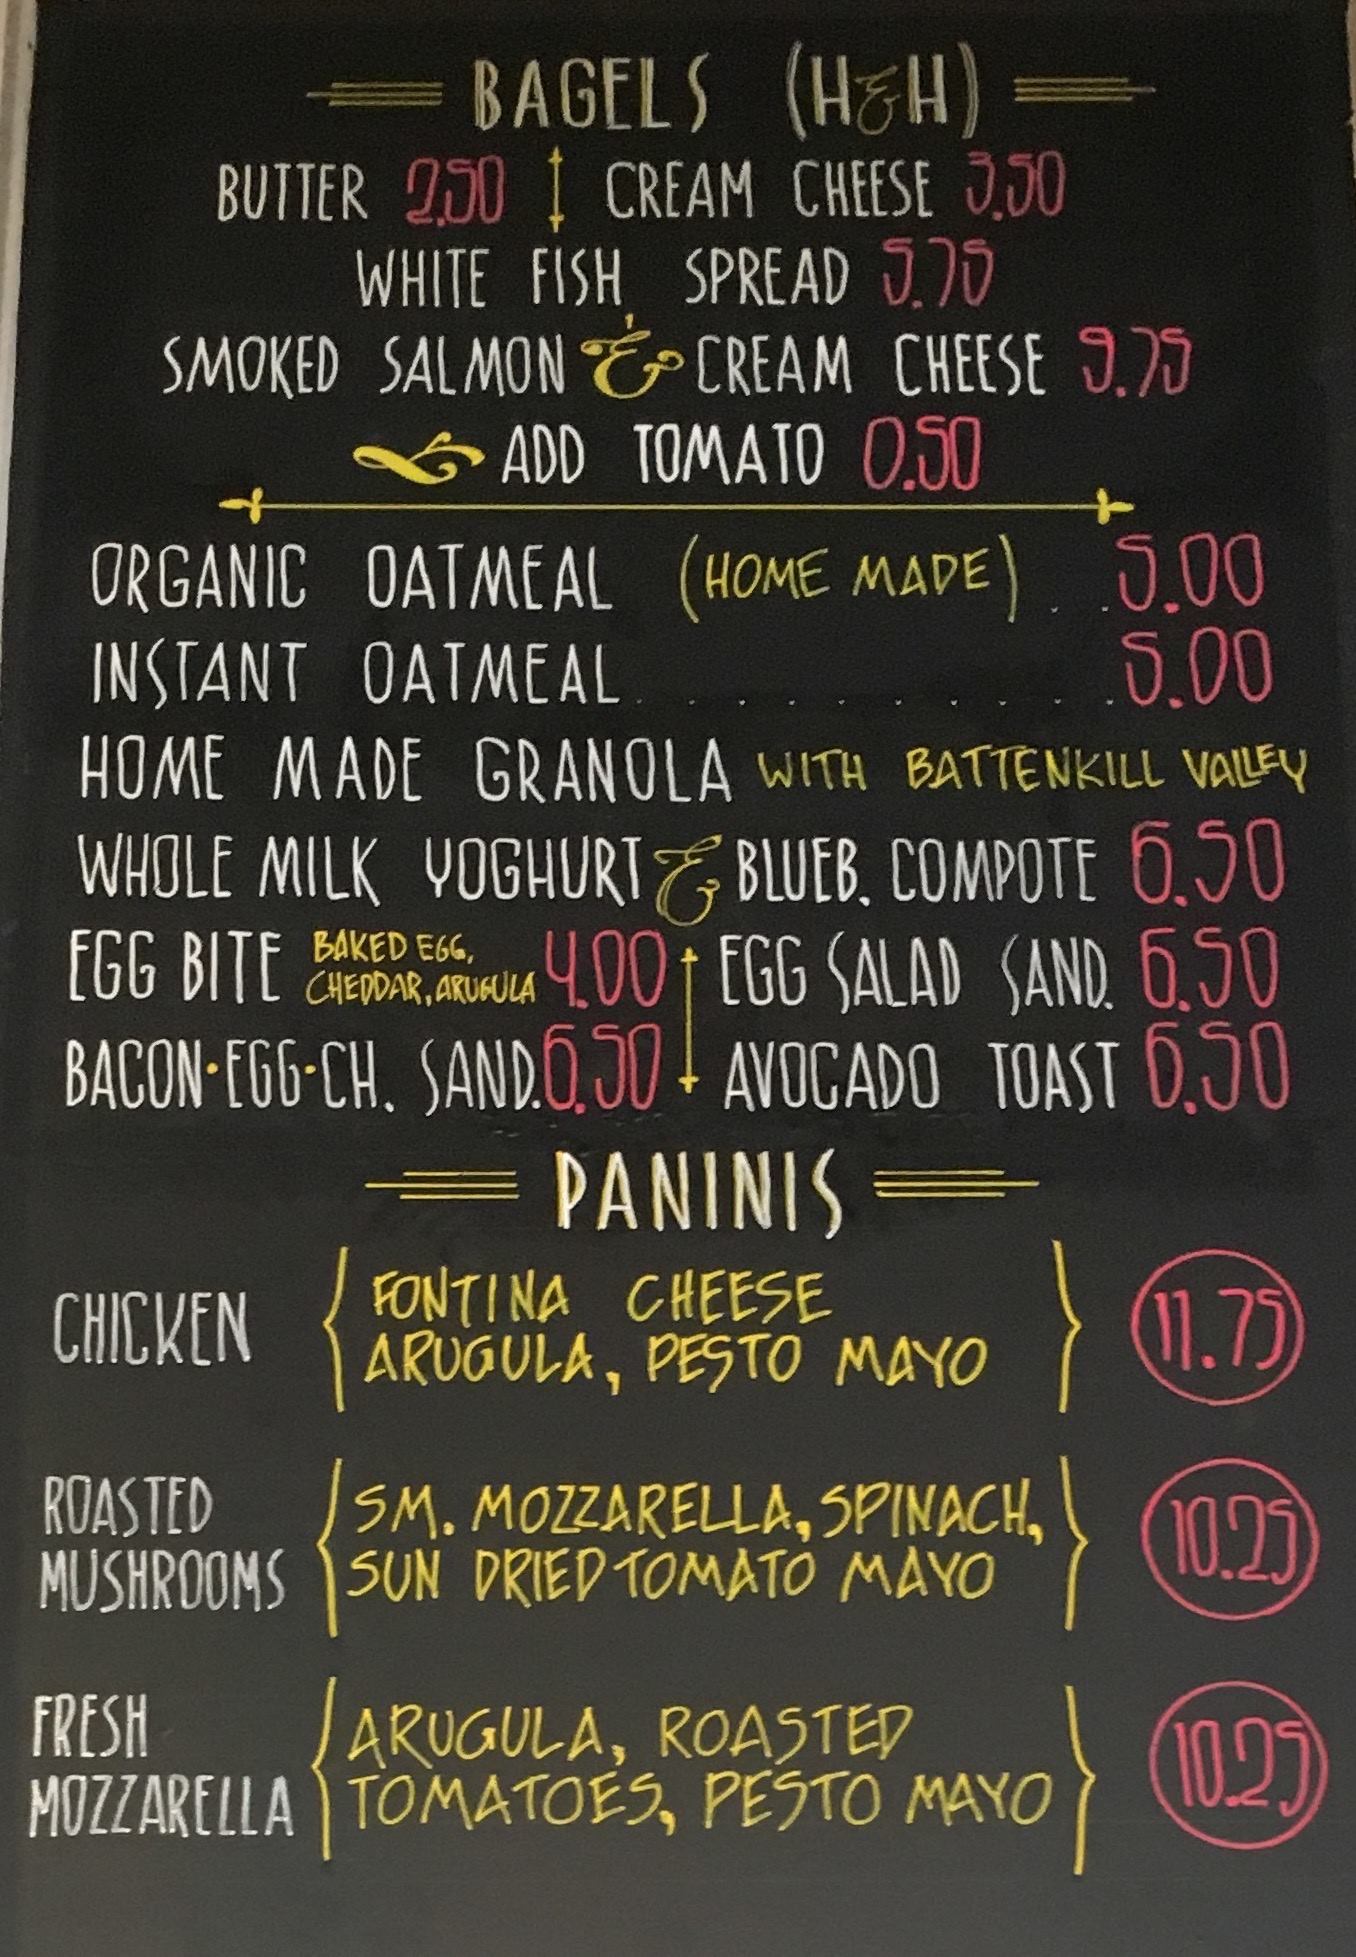 BAGELS (H&H)
BUTTER 2.50 CREAM CHEESE 3.50
WHITE FISH SPREAD 5.75
SMOKED SALMON & CREAM CHEESE 9.75
& ADD TOMATO 0.50
ORGANIC OATMEAL (HOME MADE) . . 5.00
INSTANT OATMEAL . . . . . . . . . 5.00
HOME MADE GRANOLA WITH BATTENKILL VALLEY
WHOLE MILK YOGHURT & BLUEB. COMPOTE 6.50
EGG BITE BAKED EGG, CHEDDAR, ARUGULA 4.00 EGG SALAD SAND. 6.50
BACON·EGG·CH. SAND. 6.50 AVOCADO TOAST 6.50
PANINIS
CHICKEN { FONTINA CHEESE
ARUGULA, PESTO MAYO } 11.75
ROASTED
MUSHROOMS { SM. MOZZARELLA, SPINACH,
SUN DRIED TOMATO MAYO } 10.25
FRESH
MOZZARELLA { ARUGULA, ROASTED
TOMATOES, PESTO MAYO } 10.25